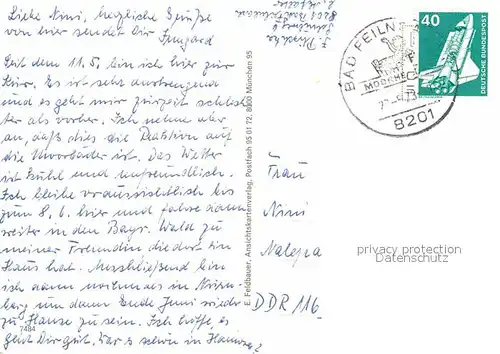 Liebe Nini, herzliche Grüße
von hier sendet Dir Irmgard
Seit dem 11.5. bin ich hier zur
Kur. Es ist sehr anstrengend
und es geht mir zurzeit schlech-
ter als vorher. Ich nehme aber
an, daß dies die Reaktion auf
die Moorbäder ist. Das Wetter
ist kühl und unfreundlich.
Ich bleibe voraussichtlich bis
zum 8.6. hier und fahre dann
weiter in den Bayr. Wald zu
meiner Freundin die dort ein
Haus hat. Anschließend bin
ich dann nochmals in Nürn-
berg um dann Ende Juni wieder
zu Hause zu sein. Ich hoffe, es
geht Dir gut. War es schön in
7484
E. Feldbauer, Ansichtskartenverlag, Postfach 95 01 72, 8000 München 95
8201 Bad Feilnbach
BAD FEILN
8201
40
DEUTSCHE BUNDESPOST
Frau
Nini
DDR 116
privacy protection